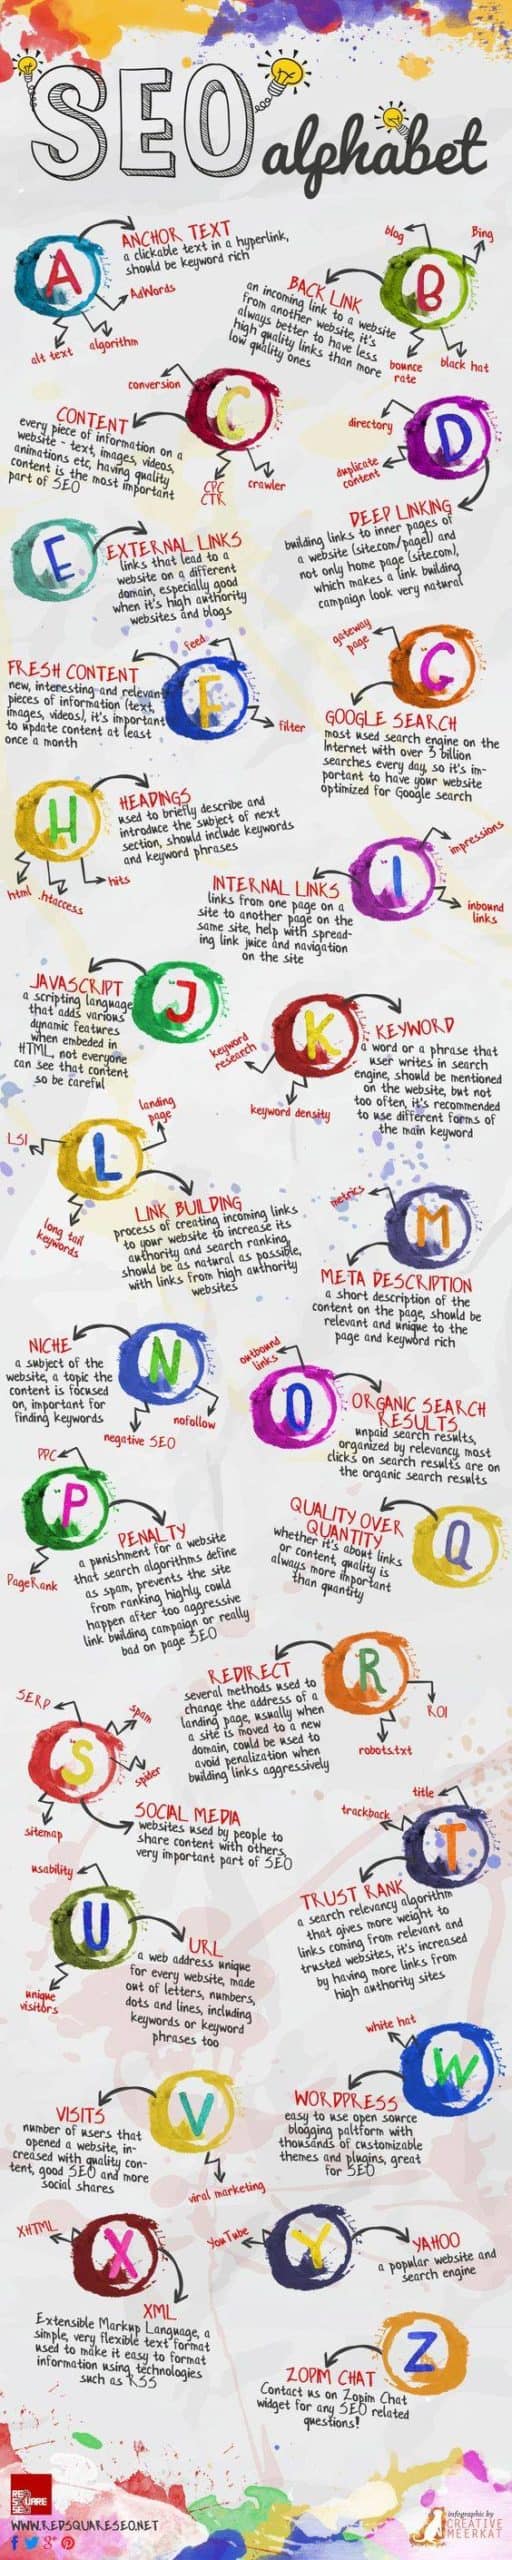 SEO alphabet
A
ANCHOR TEXT
a clickable text in a hyperlink,
should be keyword rich
AdWords
algorithm
alt text
B
blog
Bing
BACK LINK
an incoming link to a website
from another website, it's
always better to have less
high quality links than more
low quality ones
bounce
rate
black hat
C
conversion
CONTENT
every piece of information on a
website - text, images, videos,
animations etc, having quality
content is the most important
part of SEO
CPC
CTR
crawler
D
directory
duplicate
content
DEEP LINKING
building links to inner pages of
a website (site.com/page1) and
not only home page (site.com),
which makes a link building
campaign look very natural
E
EXTERNAL LINKS
links that lead to a
website on a different
domain, especially good
when it's high authority
websites and blogs
F
feed
FRESH CONTENT
new, interesting and relevant
pieces of information (text,
images, videos), it's important
to update content at least
once a month
filter
G
gateway
page
GOOGLE SEARCH
most used search engine on the
Internet with over 3 billion
searches every day, so it's im-
portant to have your website
optimized for Google search
H
HEADINGS
used to briefly describe and
introduce the subject of next
section, should include keywords
and keyword phrases
html
.htaccess
hits
I
impressions
inbound
links
INTERNAL LINKS
links from one page on a
site to another page on the
same site, help with spread-
ing link juice and navigation
on the site
J
JAVASCRIPT
a scripting language
that adds various
dynamic features
when embeded in
HTML, not everyone
can see that content
so be careful
K
KEYWORD
a word or a phrase that
user writes in search
engine, should be mentioned
on the website, but not
too often, it's recommended
to use different forms of
the main keyword
keyword
research
keyword density
L
landing
page
LSI
long tail
keywords
LINK BUILDING
process of creating incoming links
to your website to increase its
authority and search ranking,
should be as natural as possible,
with links from high authority
websites
M
metrics
META DESCRIPTION
a short description of the
content on the page, should be
relevant and unique to the
page and keyword rich
N
NICHE
a subject of the
website, a topic the
content is focused
on, important for
finding keywords
negative SEO
nofollow
O
outbound
links
ORGANIC SEARCH
RESULTS
unpaid search results,
organized by relevancy, most
clicks on search results are on
the organic search results
P
PPC
PageRank
PENALTY
a punishment for a website
that search algorithms define
as spam, prevents the site
from ranking highly, could
happen after too aggressive
link building campaign or really
bad on page SEO
Q
QUALITY OVER
QUANTITY
whether it's about links
or content, quality is
always more important
than quantity
R
REDIRECT
several methods used to
change the address of a
landing page, usually when
a site is moved to a new
domain, could be used to
avoid penalization when
building links aggressively
ROI
robots.txt
S
SERP
spam
spider
sitemap
SOCIAL MEDIA
websites used by people to
share content with others,
very important part of SEO
T
title
trackback
TRUST RANK
a search relevancy algorithm
that gives more weight to
links coming from relevant and
trusted websites, it's increased
by having more links from
high authority sites
U
usability
unique
visitors
URL
a web address unique
for every website, made
out of letters, numbers,
dots and lines, including
keywords or keyword
phrases too
V
VISITS
number of users that
opened a website, in-
creased with quality con-
tent, good SEO and more
social shares
viral marketing
W
white hat
WORDPRESS
easy to use open source
blogging paltform with
thousands of customizable
themes and plugins, great
for SEO
X
XHTML
XML
Extensible Markup Language, a
simple, very flexible text format
used to make it easy to format
information using technologies
such as RSS
Y
YouTube
YAHOO
a popular website and
search engine
Z
ZOPIM CHAT
Contact us on Zopim Chat
widget for any SEO related
questions!
RED
SQUARE
SEO
WWW.REDSQUARESEO.NET
infographic by
CREATIVE
MEERKAT